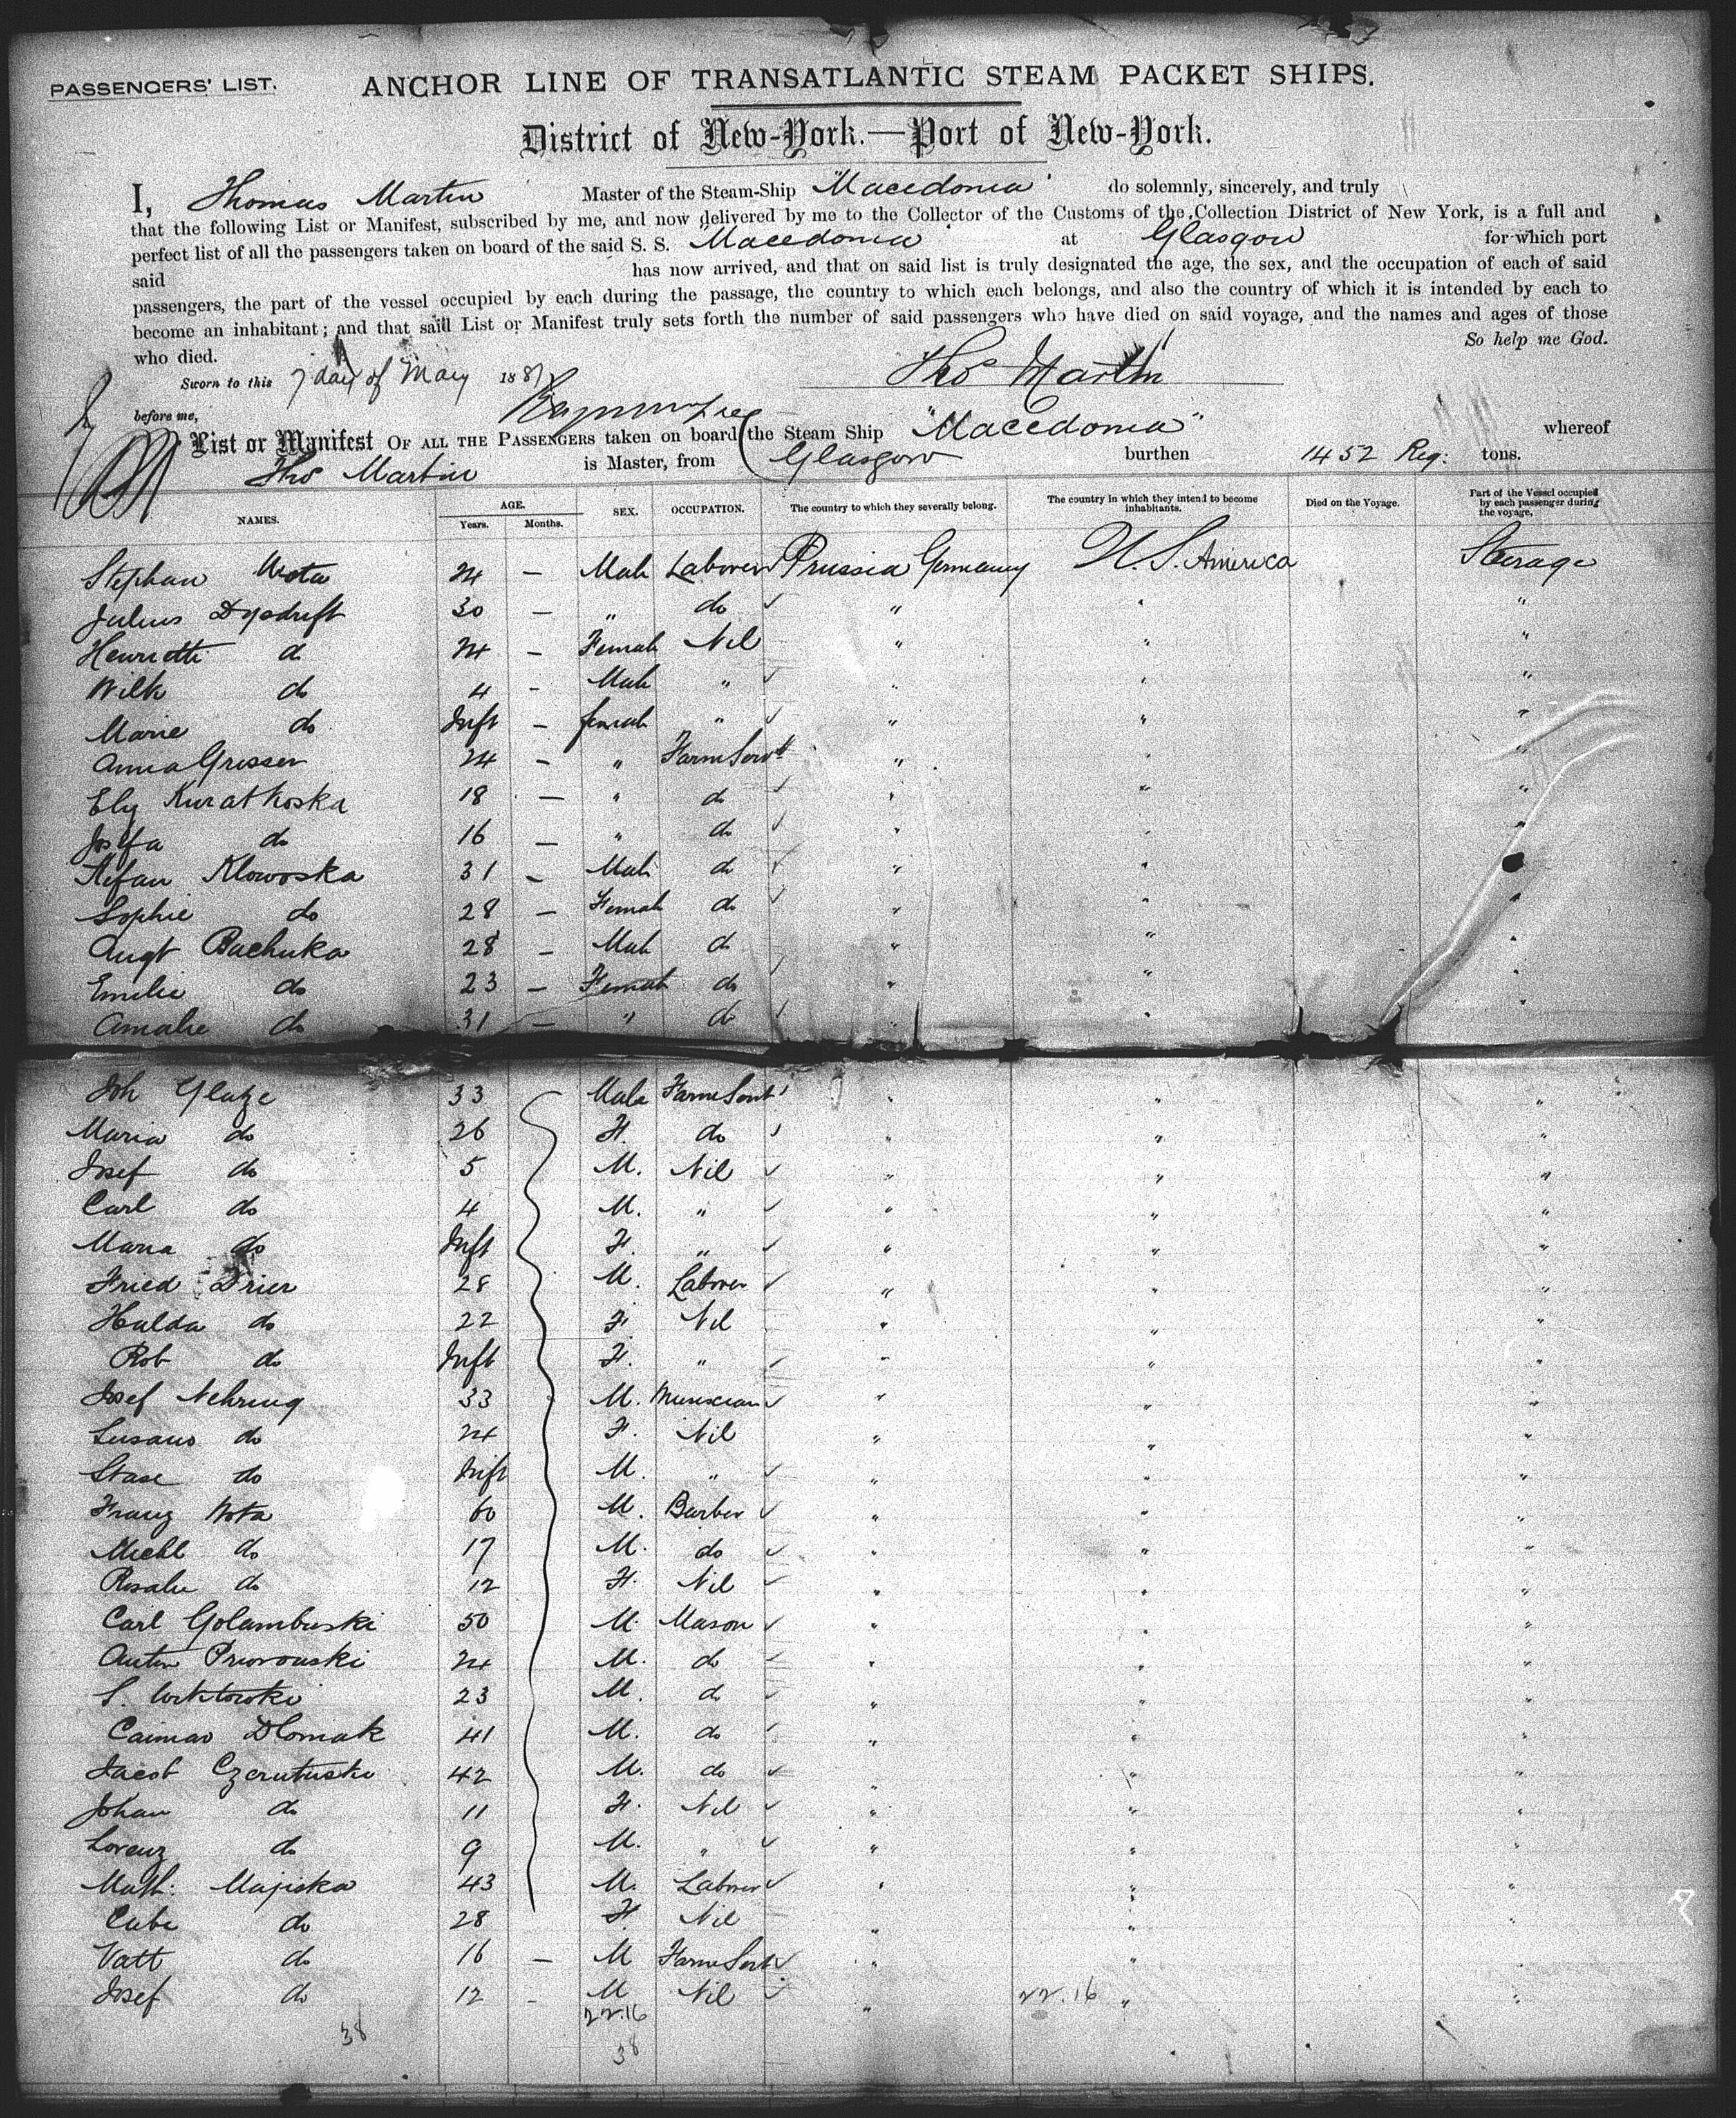 PASSENGERS' LIST.
ANCHOR LINE OF TRANSATLANTIC STEAM PACKET SHIPS.
District of New-York.—Port of New-York.
I, Thomas Martin Master of the Steam-Ship "Macedonia" do solemnly, sincerely, and truly
that the following List or Manifest, subscribed by me, and now delivered by me to the Collector of the Customs of the Collection District of New York, is a full and
perfect list of all the passengers taken on board of the said S. S. "Macedonia" at Glasgow for which port
said has now arrived, and that on said list is truly designated the age, the sex, and the occupation of each of said
passengers, the part of the vessel occupied by each during the passage, the country to which each belongs, and also the country of which it is intended by each to
become an inhabitant; and that said List or Manifest truly sets forth the number of said passengers who have died on said voyage, and the names and ages of those
who died. So help me God.
Sworn to this 7 day of May 1881 Thos Martin
before me,
List or Manifest OF ALL THE PASSENGERS taken on board the Steam Ship "Macedonia" whereof
Thos Martin is Master, from Glasgow burthen 1452 Reg: tons.
NAMES. AGE. Years. Months. SEX. OCCUPATION. The country to which they severally belong. The country in which they intend to become inhabitants. Died on the Voyage. Part of the Vessel occupied by each passenger during the voyage.
Stephan 24 — Male Laborer Prussia Germany U. S. America Steerage
Julius 30 — " do " " "
Henriette d 24 — Female Nil " " "
Wilh do 4 - Male " " " "
Marie do Inft — female " " " "
Anna Grosser 24 - " Farm Servt " " "
Ely Kurathoska 18 — " do " " "
Josefa do 16 — " do " " "
Stefan Klowoska 31 - Male do " " "
Sophie do 28 — Female do " " "
Augt Bachuka 28 — Male do " " "
Emilie do 23 — Female do " " "
Amalie do 31 — " do " " "
Joh Glatze 33 Male Farm Servt " " "
Maria do 26 F. do " " "
Josef do 5 M. Nil " " "
Carl do 4 M. " " " "
Maria do Inft F. " " " "
Fried Drier 28 M. Laborer " " "
Hulda do 22 F. Nil " " "
Rob do Inft F. " " " "
Josef Nehring 33 M. Musician " " "
Susano do 24 F. Nil " " "
Stase do Inft M. " " " "
Franz Nota 60 M. Barber " " "
Michl do 17 M. do " " "
Rosalie do 12 F. Nil " " "
Carl Golambuski 50 M. Mason " " "
Anton 24 M. do " " "
S. 23 M. do " " "
Caimar Dlomak 41 M. do " " "
Jacob Czerutuski 42 M. do " " "
Johan do 11 F. Nil " " "
Lorenz do 9 M. " " " "
Math: Majiska 43 M. Laborer " " "
Cube do 28 F. Nil " " "
Vatt do 16 — M Farm Servt " " "
Josef do 12 - M Nil " 22.16 " "
22.16
38 38